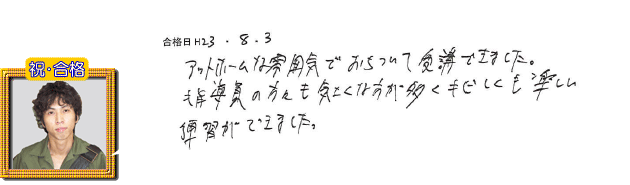 合格日 H23.8.3
祝・合格
アットホームな雰囲気でおちついて受講できました。
指導員の方々も気さくな方が多くきびしくも楽しい
練習ができました。